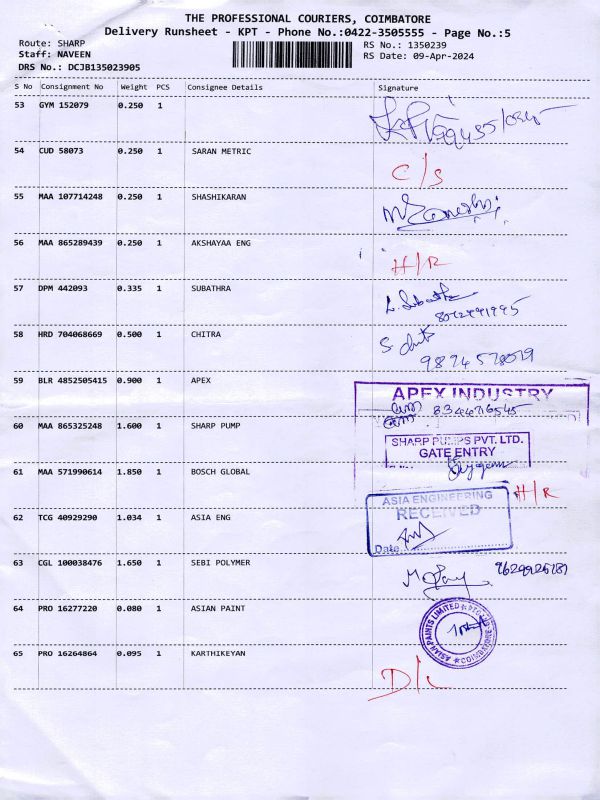 THE PROFESSIONAL COURIERS, COIMBATORE
Delivery Runsheet - KPT - Phone No.:0422-3505555 - Page No.:5
Route: SHARP
Staff: NAVEEN
DRS No.: DCJB135023905
RS No.: 1350239
RS Date: 09-Apr-2024
S No Consignment No Weight PCS Consignee Details Signature
53 GYM 152079 0.250 1
54 CUD 58073 0.250 1 SARAN METRIC C/S
55 MAA 107714248 0.250 1 SHASHIKARAN
56 MAA 865289439 0.250 1 AKSHAYAA ENG H/R
57 DPM 442093 0.335 1 SUBATHRA
58 HRD 704068669 0.500 1 CHITRA
59 BLR 4852505415 0.900 1 APEX APEX INDUSTRY
60 MAA 865325248 1.600 1 SHARP PUMP SHARP PUMPS PVT. LTD.
GATE ENTRY
61 MAA 571990614 1.850 1 BOSCH GLOBAL H/R
62 TCG 40929290 1.034 1 ASIA ENG ASIA ENGINEERING
RECEIVED
Date
63 CGL 100038476 1.650 1 SEBI POLYMER
64 PRO 16277220 0.080 1 ASIAN PAINT ASIAN PAINTS LIMITED COIMBATORE
65 PRO 16264864 0.095 1 KARTHIKEYAN D/L